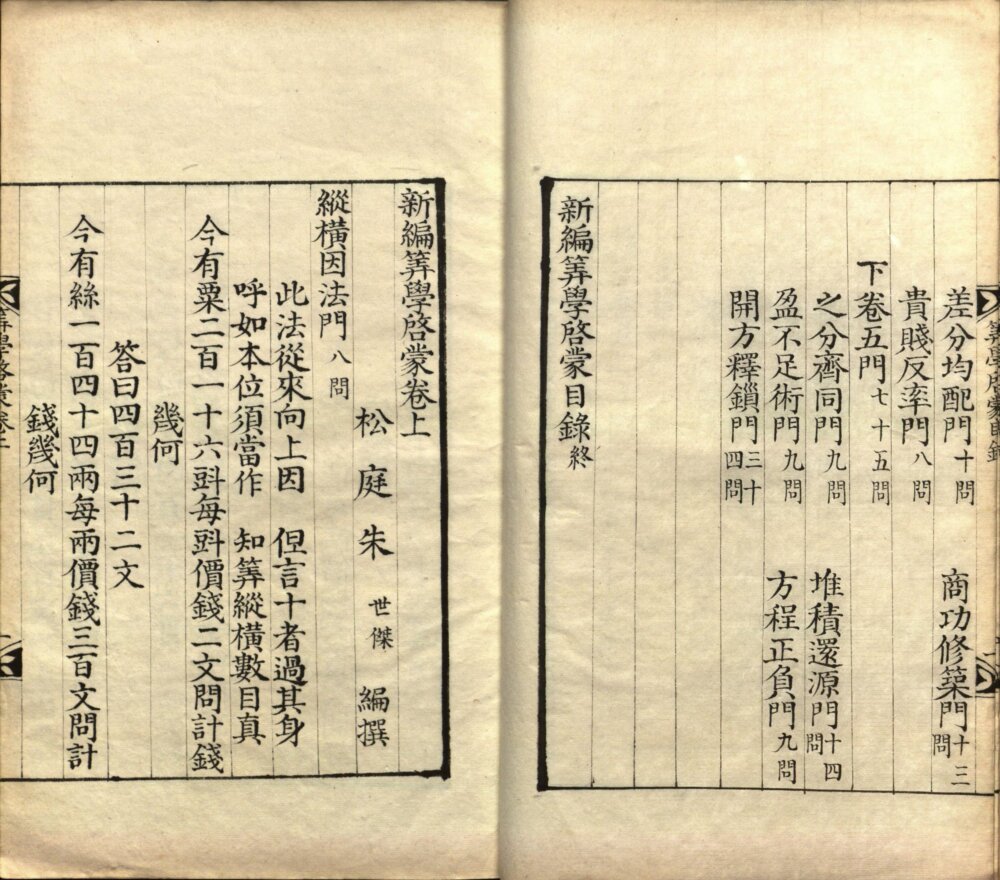 差分均配門十問 商功修築門十三問
貴賤反率門八問
下卷五門七十五問
之分齊同門九問 堆積還源門十四問
盈不足術門九問 方程正負門九問
開方釋鎖門三十四問
新編筭學啓蒙目錄終
新編筭學啓蒙卷上
松庭朱世傑編撰
縱橫因法門八問
此法從來向上因 但言十者過其身
呼如本位須當作 知筭縱橫數目真
今有粟二百一十六㪷每㪷價錢二文問計錢
幾何
答曰四百三十二文
今有絲一百四十四兩每兩價錢三百文問計
錢幾何